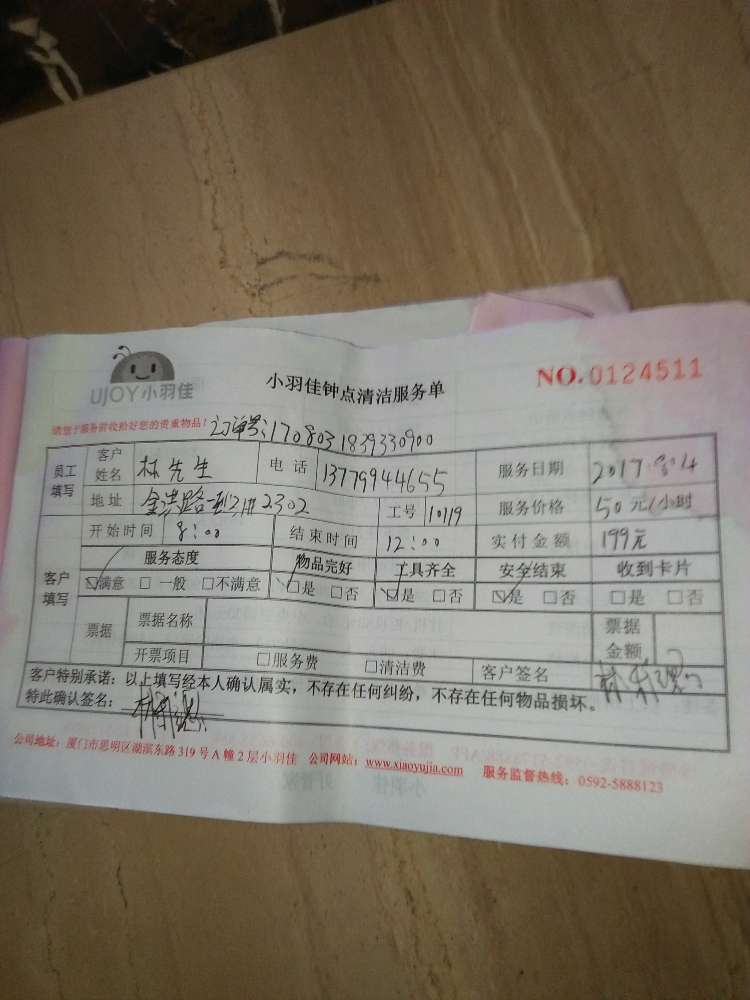 UJOY小羽佳
小羽佳钟点清洁服务单
NO.0124511
请您于服务前收拾好您的贵重物品！
订单号：1708031839330900
员工填写 客户姓名 林先生 电话 13779944655 服务日期 2017.8.4
地址 2302 工号 10119 服务价格 50元/小时
开始时间 8:00 结束时间 12:00 实付金额 199元
客户填写 服务态度 物品完好 工具齐全 安全结束 收到卡片
☑满意 □一般 □不满意 ☑是 □否 ☑是 □否 ☑是 □否 □是 □否
票据 票据名称 票据金额
开票项目 □服务费 □清洁费 客户签名
客户特别承诺：以上填写经本人确认属实，不存在任何纠纷，不存在任何物品损坏。
特此确认签名：
公司地址：厦门市思明区湖滨东路319号A幢2层小羽佳 公司网站：www.xiaoyujia.com 服务监督热线：0592-5888123